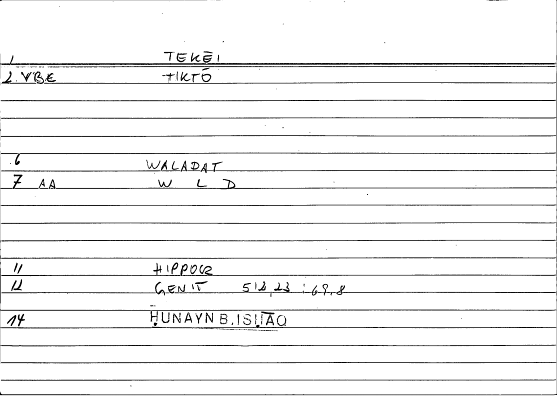 1 TEKĒI
2. VBE TIKTŌ
6 WALADAT
7 AA W L D
11 HIPPOCR
12 GENIT 512,23 : 69,8
14 ḤUNAYN B. ISḤĀQ